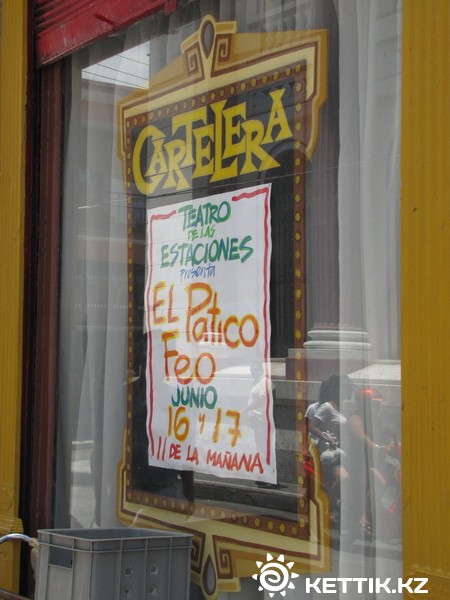 CARTELERA
TEATRO
DE LAS
ESTACIONES
Presenta
EL Patico
Feo
JUNIO
16 y 17
11 DE LA MAÑANA
KETTIK.KZ